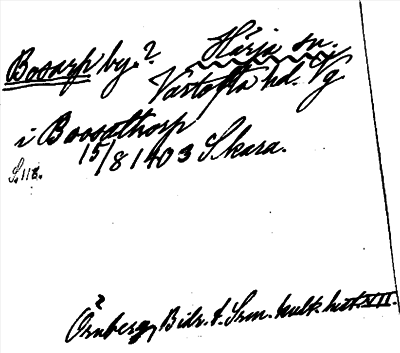 Bosarp by.? Härja sn.
Vartofta hd. Vg
i Boosathorp
15/8 1403 Skara.
S. 118.
Örnberg, Bidr. t. Srm. kult. hist. XII.